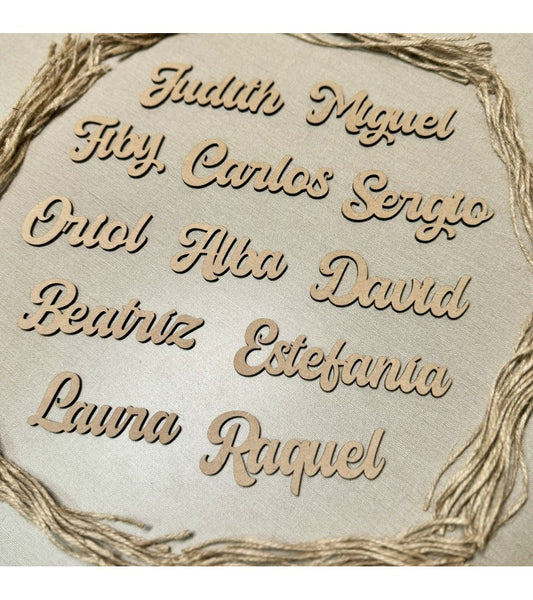 Judith Miguel
Fiby Carlos Sergio
Oriol Alba David
Beatriz Estefania
Laura Raquel